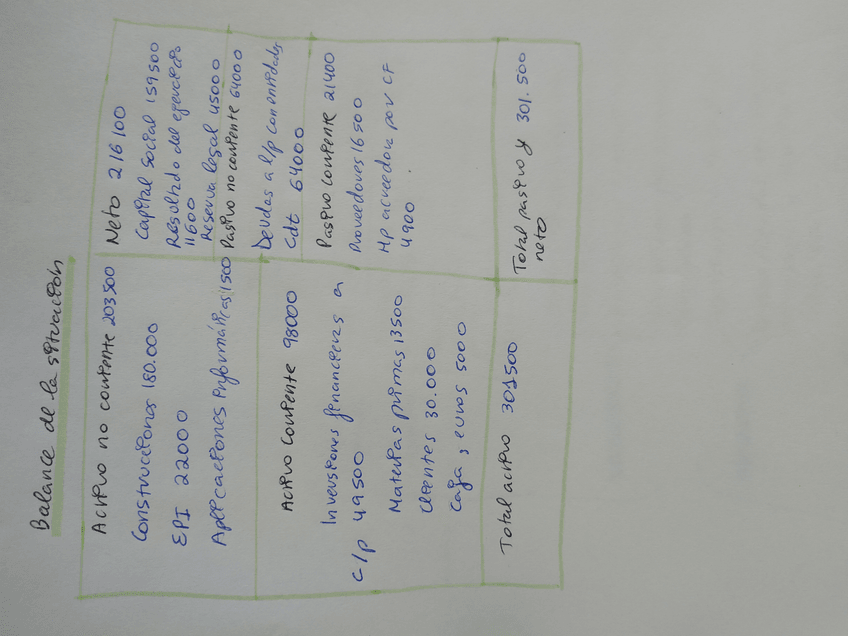 Balance de la situación
Activo no corriente 203500
Construcciones 180.000
EPI 22000
Aplicaciones informáticas 1500
Activo corriente 98000
Inversiones financieras a
c/p 49500
Materias primas 13500
Clientes 30.000
Caja, euros 5000
Total activo 301500
Neto 216100
Capital social 159500
Resultado del ejercicio
11600
Reserva legal 45000
Pasivo no corriente 64000
Deudas a l/p con entidades
cdt 64000
Pasivo corriente 21400
Proveedores 16500
Hp acreedora por CF
4900.
Total pasivo y 301.500
neto